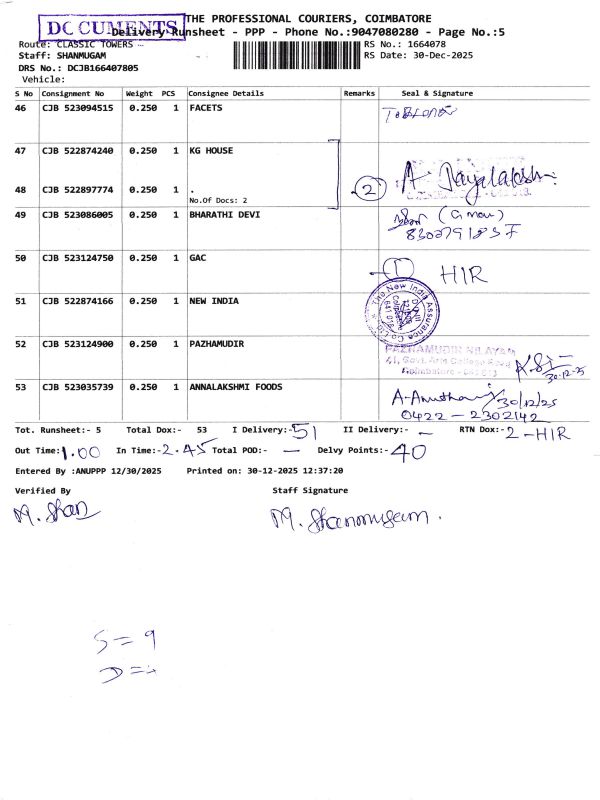 DOCUMENTS
THE PROFESSIONAL COURIERS, COIMBATORE
Delivery Runsheet - PPP - Phone No.:9047080280 - Page No.:5
Route: CLASSIC TOWERS
RS No.: 1664078
Staff: SHANMUGAM
RS Date: 30-Dec-2025
DRS No.: DCJB166407805
Vehicle:
S No Consignment No Weight PCS Consignee Details Remarks Seal & Signature
46 CJB 523094515 0.250 1 FACETS
47 CJB 522874240 0.250 1 KG HOUSE
48 CJB 522897774 0.250 1 . 2 A. Jayalakshmi
No.Of Docs: 2
49 CJB 523086005 0.250 1 BHARATHI DEVI
50 CJB 523124750 0.250 1 GAC 1 HIR
51 CJB 522874166 0.250 1 NEW INDIA
The New India Assurance Co. Ltd.
52 CJB 523124900 0.250 1 PAZHAMUDIR
PAZHAMUDIR NILAYAM
41, Govt. Arts College Road
Coimbatore - 641 018
30-12-25
53 CJB 523035739 0.250 1 ANNALAKSHMI FOODS
30/12/25
0422 - 2302142
Tot. Runsheet:- 5 Total Dox:- 53 I Delivery:- 51 II Delivery:- - RTN Dox:- 2 - HIR
Out Time: 1.00 In Time:- 2.45 Total POD:- - Delvy Points:- 40
Entered By :ANUPPP 12/30/2025 Printed on: 30-12-2025 12:37:20
Verified By Staff Signature
M. Shan M. Shanmugam.
S = 9